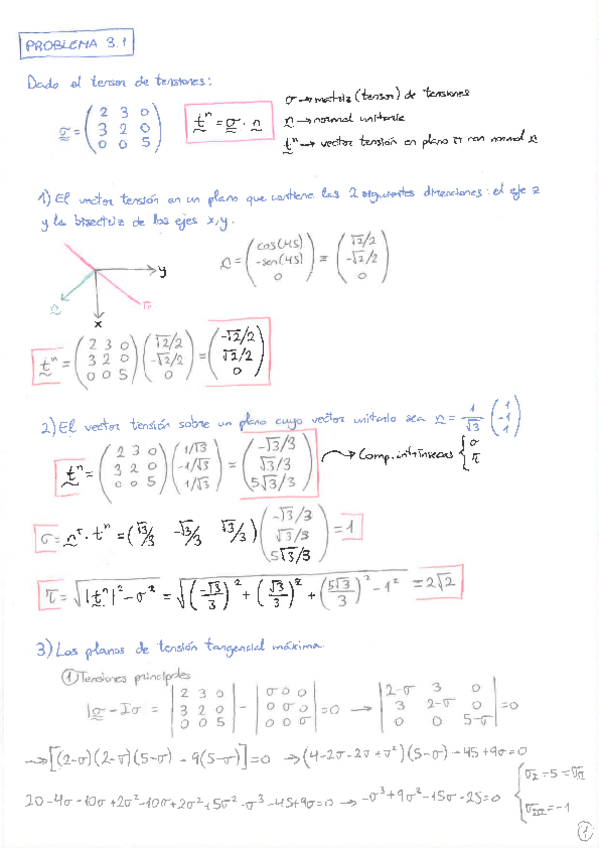 PROBLEMA 3.1
Dado el tensor de tensiones:
σ = ( 2 3 0 / 3 2 0 / 0 0 5 )
tⁿ = σ · n
σ → matriz (tensor) de tensiones
n → normal unitaria
tⁿ → vector tensión en plano π con normal n
1) El vector tensión en un plano que contiene las 2 siguientes direcciones: el eje z
y la bisectriz de los ejes x, y.
y
n
π
x
n = ( cos(45) / -sen(45) / 0 ) = ( √2/2 / -√2/2 / 0 )
tⁿ = ( 2 3 0 / 3 2 0 / 0 0 5 ) ( √2/2 / -√2/2 / 0 ) = ( -√2/2 / √2/2 / 0 )
2) El vector tensión sobre un plano cuyo vector unitario sea n = 1/√3 ( 1 / -1 / 1 )
tⁿ = ( 2 3 0 / 3 2 0 / 0 0 5 ) ( 1/√3 / -1/√3 / 1/√3 ) = ( -√3/3 / √3/3 / 5√3/3 ) → Comp. intrínsecas { σ / τ
σ = nᵀ · tⁿ = ( √3/3 -√3/3 √3/3 ) ( -√3/3 / √3/3 / 5√3/3 ) = 1
τ = √|tⁿ|² - σ² = √(-√3/3)² + (√3/3)² + (5√3/3)² - 1² = 2√2
3) Los planos de tensión tangencial máxima.
① Tensiones principales
|σ - Iσ = | 2 3 0 / 3 2 0 / 0 0 5 | - | σ 0 0 / 0 σ 0 / 0 0 σ | = 0 → | 2-σ 3 0 / 3 2-σ 0 / 0 0 5-σ | = 0
→ [(2-σ)(2-σ)(5-σ) - 9(5-σ)] = 0 → (4-2σ-2σ+σ²)(5-σ) - 45 + 9σ = 0
20-4σ-10σ+2σ²-10σ+2σ²+5σ²-σ³-45+9σ=0 → -σ³+9σ²-15σ-25=0 { σ_I = 5 = σ_II / σ_III = -1
1